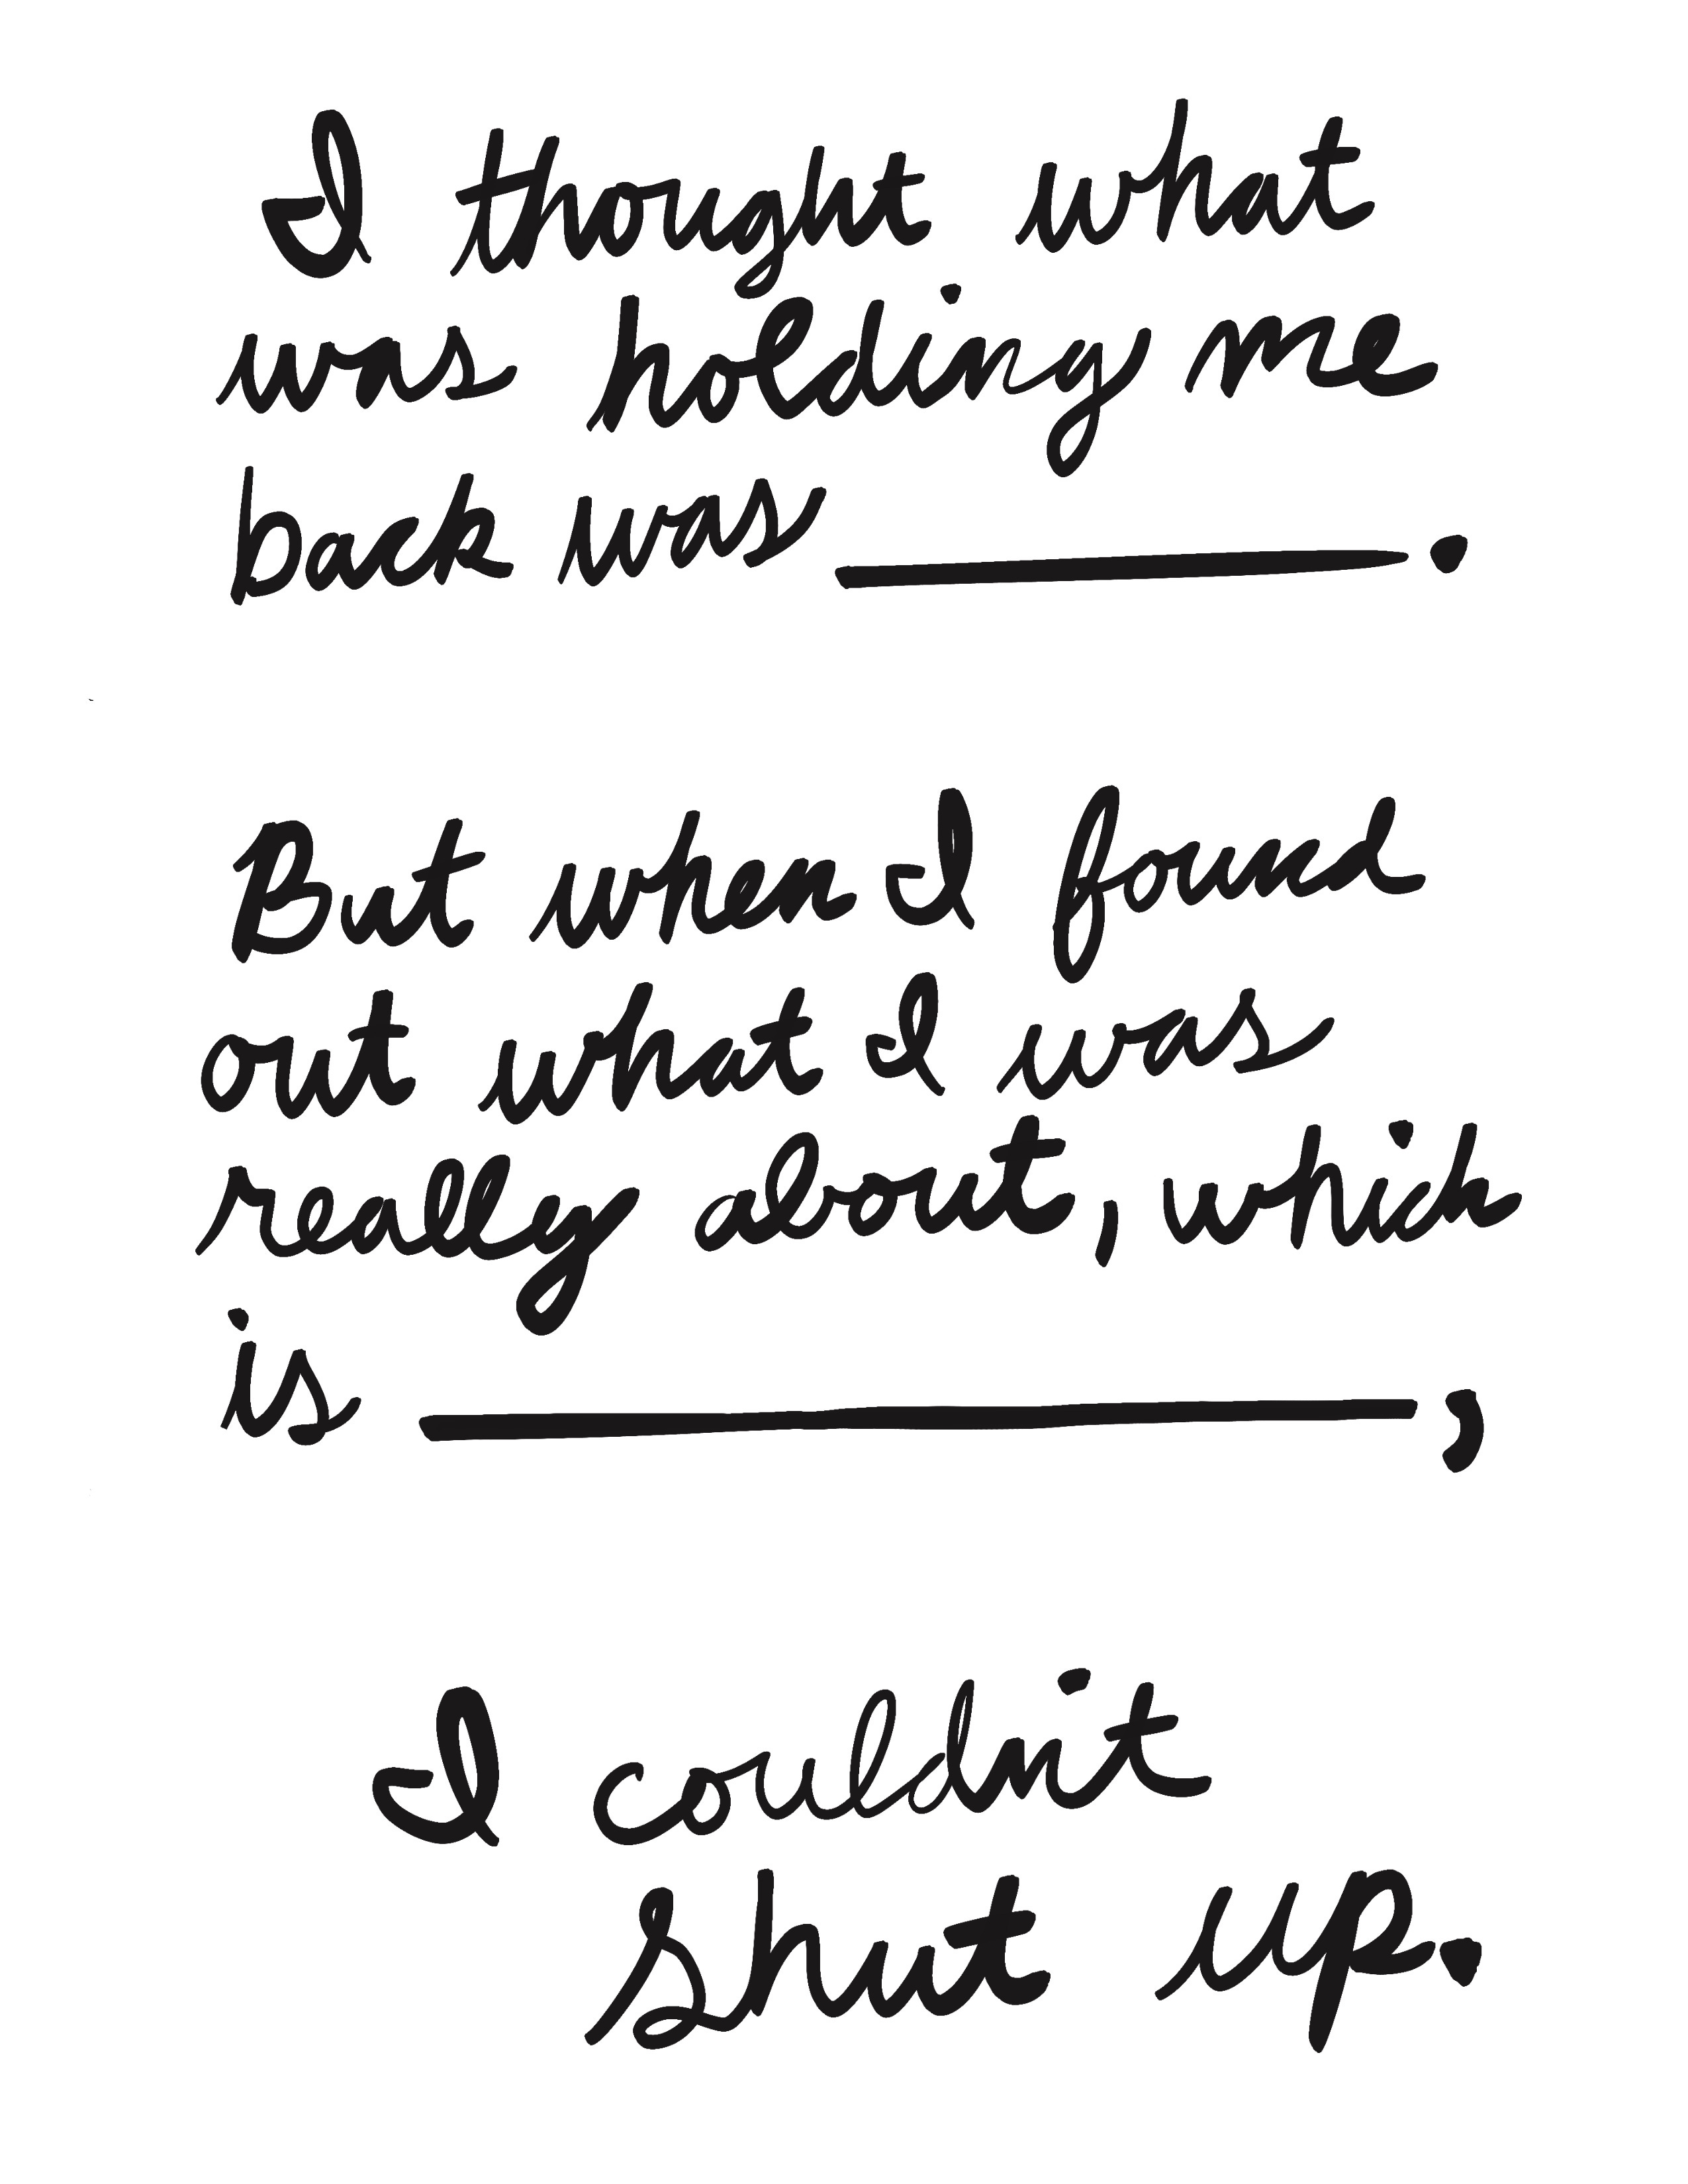 I thought what
was holding me
back was ______.
But when I found
out what I was
really about, which
is ______,
I couldn't
shut up.